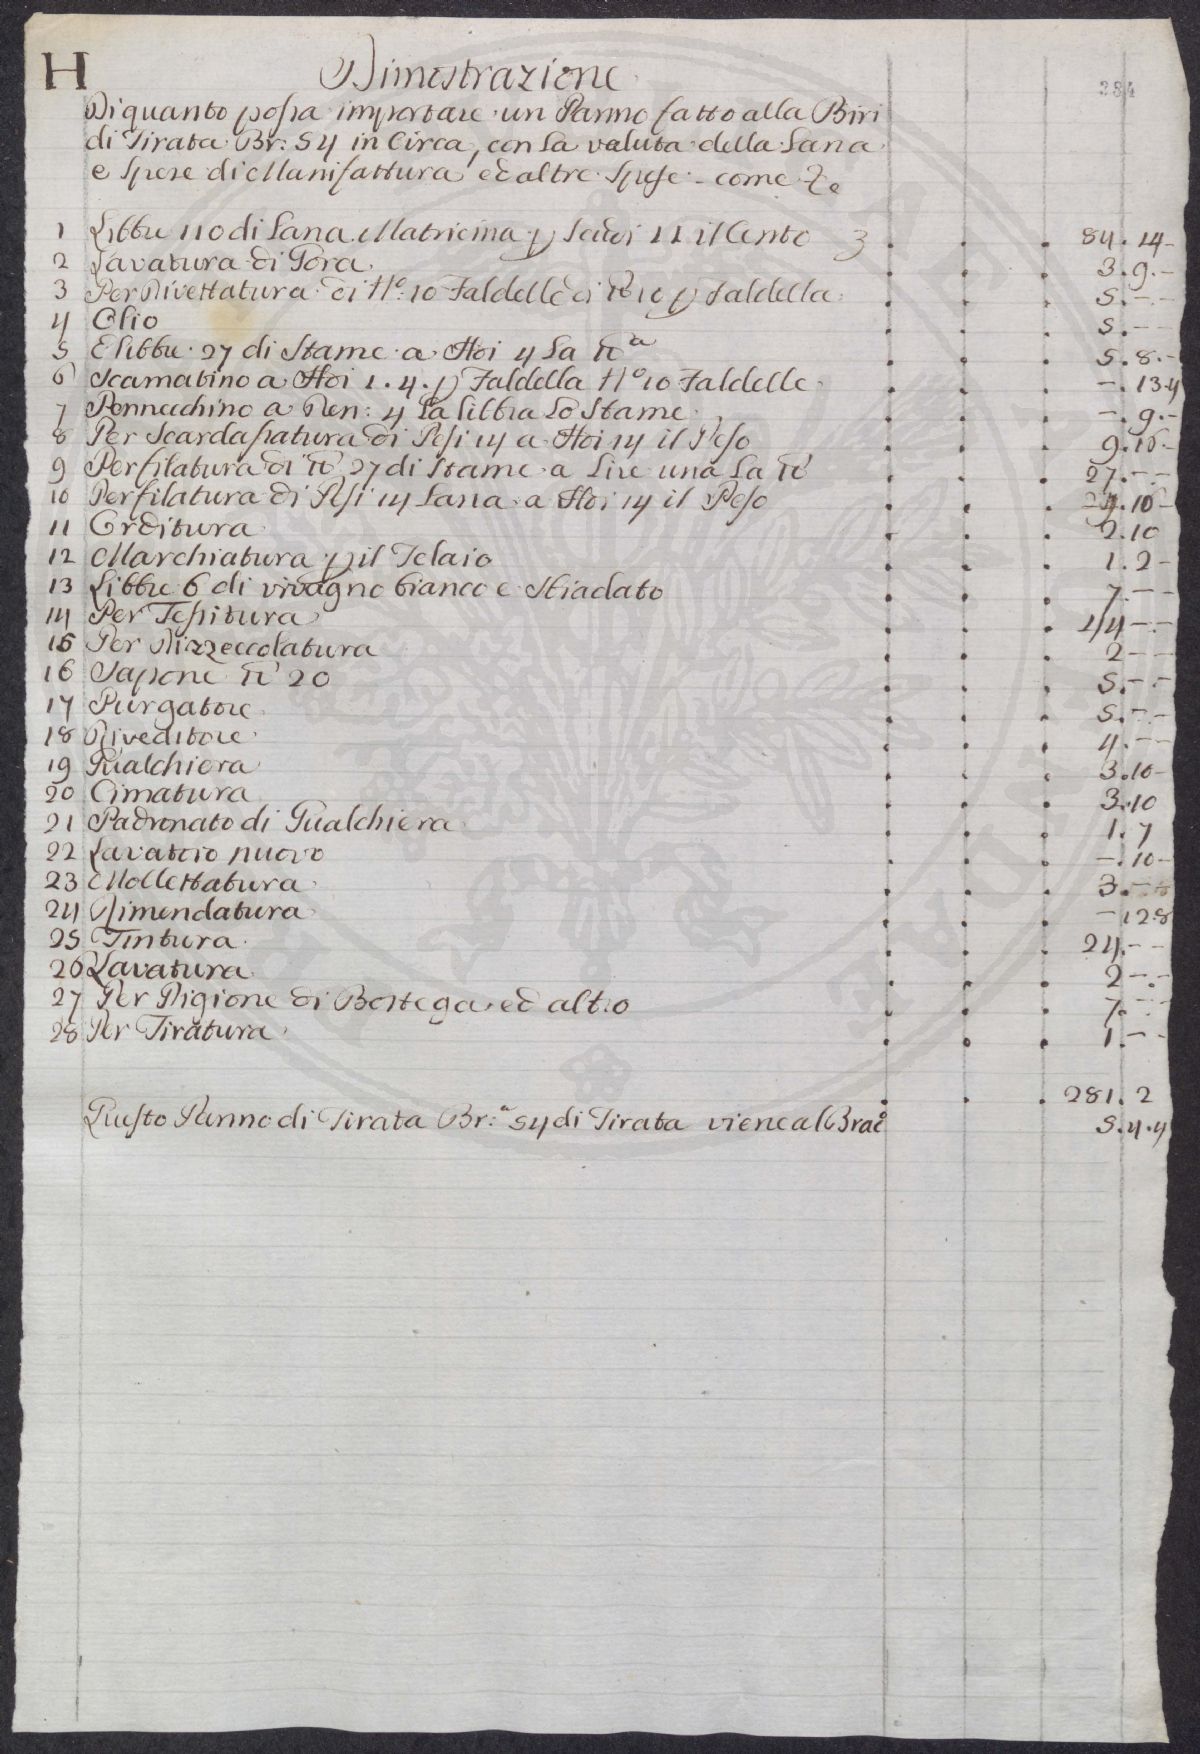 H
284
Dimostrazione
Di quanto possa importare un Panno fatto alla Biri
di Tirata Br: 54 in Circa, con La valuta della Lana
e Spese di Manifattura ed altre Spese - come
1 Libbre 110 di Lana Matricina p Scudi 11 il Cento 84.14-
2 Lavatura di Gora 3.9.-
3 Per Divettatura di N.o 10 Faldelle di 10 p Faldella 5.-.-
4 Olio 5.--
5 E libbre 27 di Stame a Soldi 4 La 5.8.-
6 Scamatino a Soldi 1.4. p Faldella N.o 10 Faldelle -.13.4
7 Pennecchino a Den: 4 La libbra Lo Stame -.9.-
8 Per Scardassatura di Pesi 14 a Soldi 14 il Peso 9.16-
9 Per filatura di 27 di Stame a Lire una La 27.--
10 Per filatura di Pesi 14 Lana a il Peso
11 Orditura 2.10
12 Marchiatura p il Telaio 1.2-
13 Libbre 6 di vivagno bianco e Stiadato 7.--
14 Per Tessitura 44-.-
15 Per Dizzeccolatura 2--
16 Sapone 20 5.-.-
17 Purgatore 5.-.-
18 Riveditore 4.--
19 Gualchiera 3.10-
20 Cimatura 3.10
21 Padronato di Gualchiera 1.7
22 Lavatoio nuovo -.10-
23 Mollettatura 3.--
24 Rimendatura -12.8
25 Tintura 24.--
26 Lavatura 2-.-
27 Per Pigione di Bottega ed altro 7.--
28 Per Tiratura 1.--
281.2
Questo Panno di Tirata Br.a 54 di Tirata viene al Brac.o 5.4.4